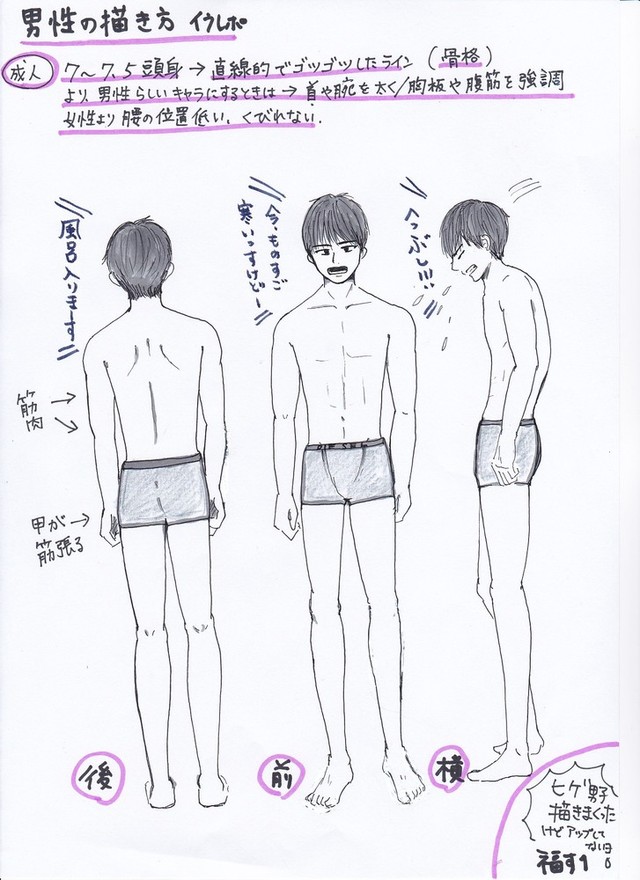 男性の描き方 イラレポ
成人
7〜7.5頭身→直線的でゴツゴツしたライン(骨格)
より、男性らしいキャラにするときは→首や腕を太く/胸板や腹筋を強調
女性より腰の位置低い、くびれない.
風呂入りまーす
今、ものすご
寒いっすけどー
へっぶし!!!
筋肉
甲が
筋張る
後
前
横
ヒゲ男子
描きまくった
けどアップして
ない日
福す1